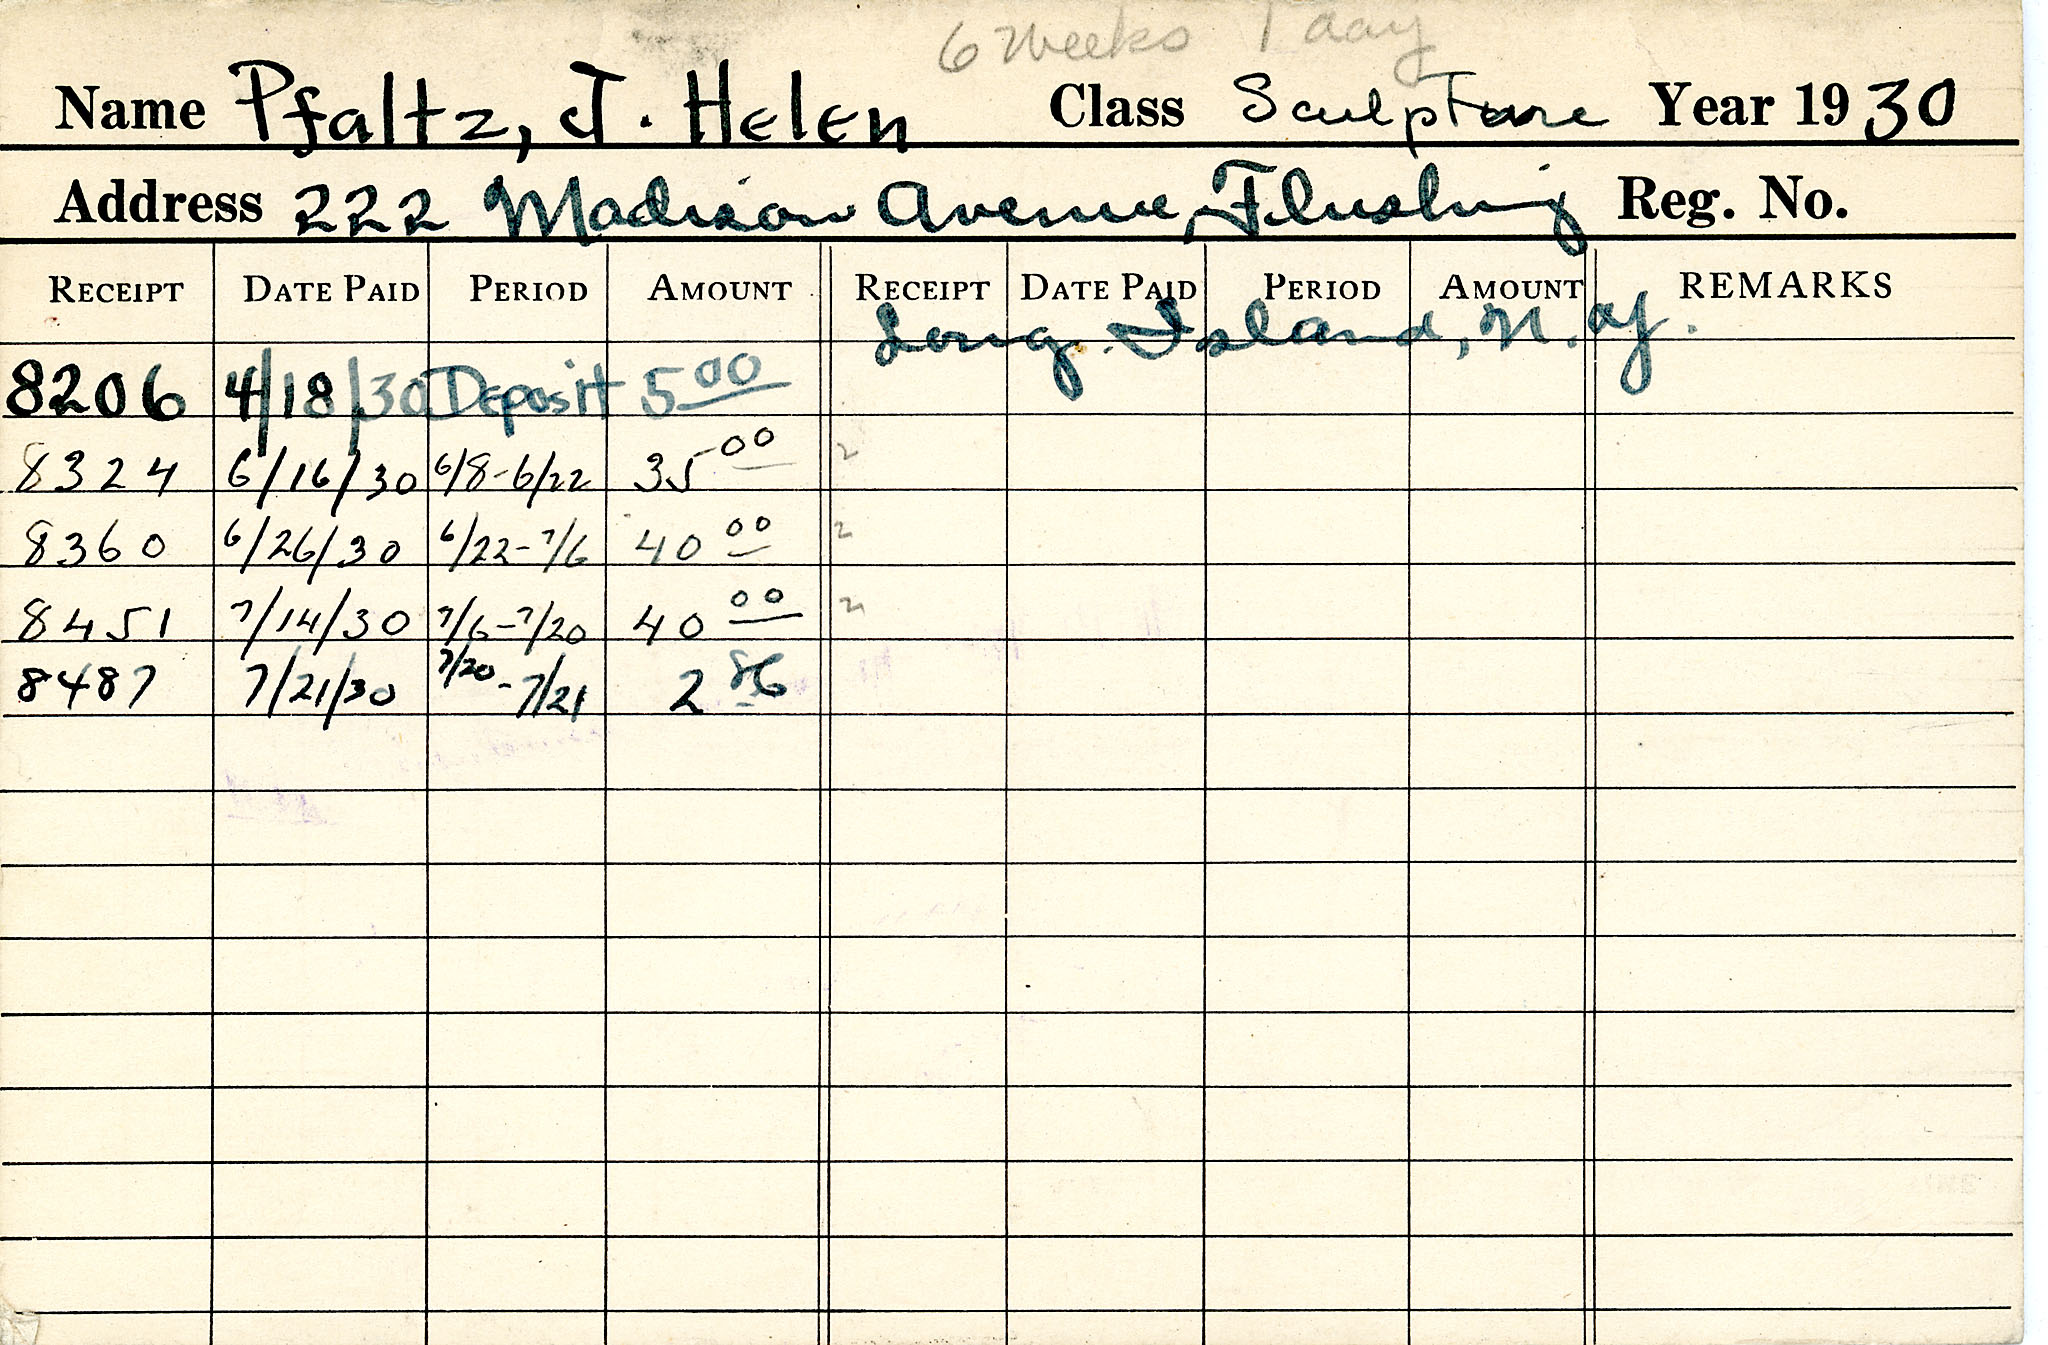 6 Weeks 1 day
Name Pfaltz, J. Helen Class Sculpture Year 1930
Address 222 Madison Avenue, Flushing Reg. No.
RECEIPT DATE PAID PERIOD AMOUNT RECEIPT DATE PAID PERIOD AMOUNT REMARKS
Long Island, N.Y.
8206 4/18/30 Deposit 5 00
8324 6/16/30 6/8-6/22 35 00 2
8360 6/26/30 6/22-7/6 40 00 2
8451 7/14/30 7/6-7/20 40 00 2
8487 7/21/30 7/20-7/21 2 86